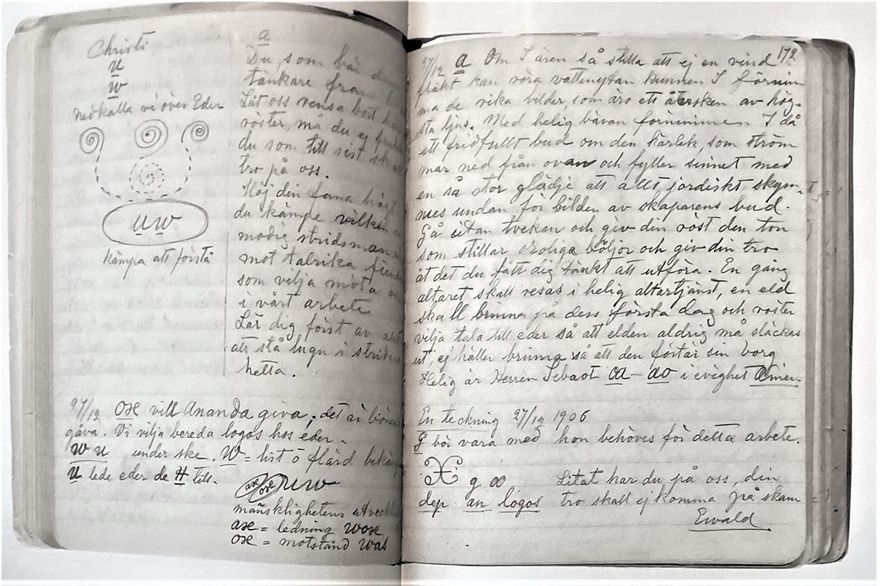 Christi
u
w
nedkalla vi över Eder
uw
kämpa att förstå
a
Du som bär den
tänkare fram
Låt oss rensa bort
röster, må du ej
du som till sist
tro på oss.
Höj din fana högt
du kämpe vilken
modig stridsman
mot talrika
som vilja möta
i vårt arbete
Lär dig först av allt
att stå lugn i stridens
hetta.
27/12 ose vill Ananda giva, det är
gåva. Vi vilja bereda logos hos eder.
w u under ske. W = list o flärd
u lede eder de H till.
ase ose uw
mänsklighetens
ase = ledning wose
ose = motstånd was
172
27/12 a Om I ären så stilla att ej en vind
fläkt kan röra vattenytan kunnen I förnim
ma de rika bilder, som äro ett återsken av hög-
sta ljus. Med helig bävan förnimmen I då
ett fridfullt bud om den kärlek, som ström
mar ned från ovan och fyller sinnet med
en så stor glädje att allt jordiskt skym-
mes undan för bilden av skaparens bud.
Gå utan tvekan och giv din röst den ton
som stillar oroliga böljor och giv din tro
åt det du fått dig tänkt att utföra. En gång
altaret skall resas i helig altartjänst, en eld
skall brinna från dess första dag och röster
vilja tala till eder så att elden aldrig må släckas
ut, ej häller brinna så att den förtär sin borg
Helig är Herren Sebaot oa - ao i evighet Amen.
En teckning 27/12 1906
G bör vara med hon behöves för detta arbete.
X g Litat har du på oss, din
dep. an logos tro skall ej komma på skam
Ewald